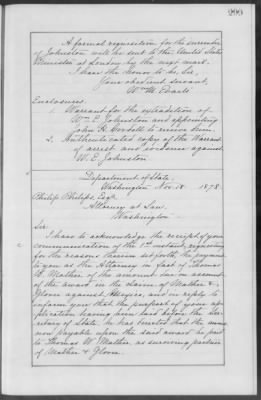 299
A formal requisition for the surrender
of Johnston will be sent to the United States
Minister at London by the next mail.
I have the honor to be, Sir,
Your obedient servant,
Wm M. Evarts
Enclosures.
1. Warrant for the extradition of
Wm E. Johnston and appointing
John H. to receive him.
2. Authenticated copy of the Warrant
of arrest and evidence against
W. E. Johnston
Department of State,
Washington Nov. 18 1878.
Philip Philips, Esqre
Attorney at Law,
Washington.
Sir:
I have to acknowledge the receipt of your
communication of the 1st instant, requesting
for the reasons therein set forth, the payment
to you as the Attorney in fact of Thomas
W. Mather of the amount due on account
of the award in the claim of Mather &
Glover against Mexico, and in reply to
inform you that the purport of your ap-
plication having been laid before the Sec-
retary of State, he has directed that the sum
now payable upon the said award be paid
to Thomas W. Mather as surviving partner
of Mather & Glover.